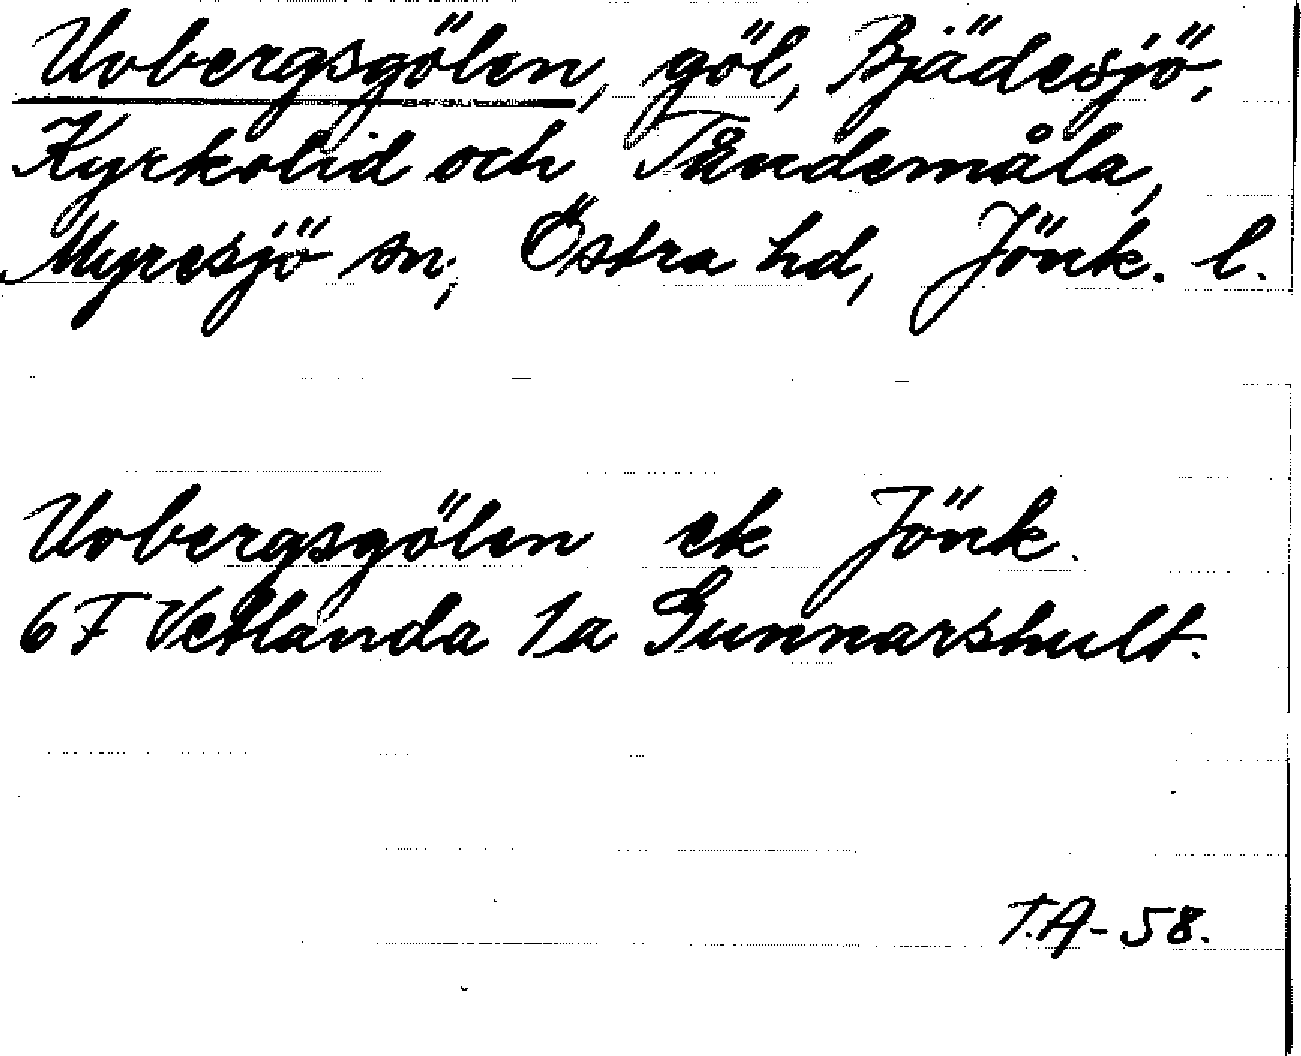 Uvbergsgölen, göl, Bjädesjö,
Kyrkolid och Tändemåla,
Myresjö sn, Östra hd, Jönk. l.
Uvbergsgölen ek Jönk.
6F Vetlanda 1a Gunnarshult.
T.A-58.